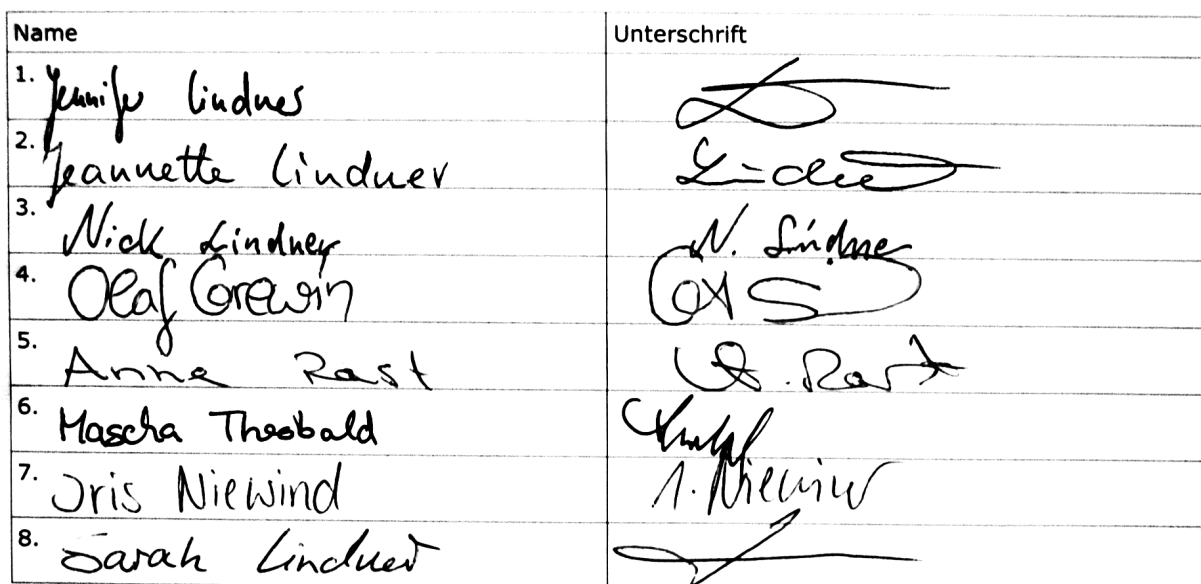 Name Unterschrift
1. Jennifer Lindner
2. Jeannette Lindner Lindner
3. Nick Lindner N. Lindner
4. Olaf Corewin
5. Anna Rast A. Rast
6. Mascha Theobald
7. Iris Niewind I. Niewind
8. Sarah Lindner